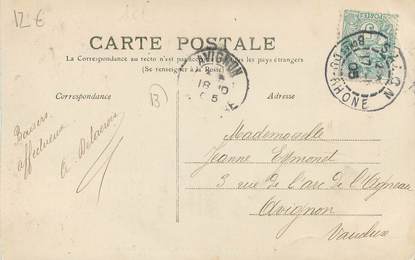 12 €
CARTE POSTALE
La Correspondance au recto n'est pas acceptée par tous les pays étrangers
(Se renseigner à la Poste)
Correspondance
13
Adresse
AVIGNON
18
05
BOUCHES-DU-RHONE
Baisers
affectueux
Mademoiselle
Jeanne Esmonet
3 rue de l'arc de l'Agneau
Avignon
Vaucluse